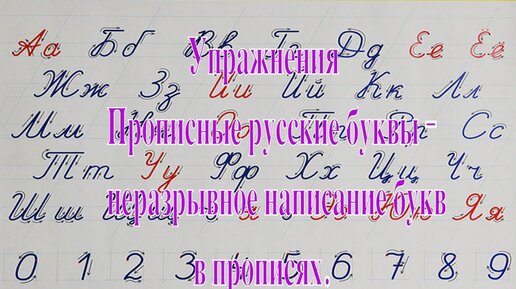 Аа Бб Вв Гг Дд Ее Ёё
Упражнения
Жж Зз Ии Йй Кк Лл
Прописные русские буквы -
Мм Нн Оо Пп Рр Сс
Тт Уу Фф Хх Цц Чч
неразрывное написание букв
Шш Щщ Яя
в прописях.
0 1 2 3 4 5 6 7 8 9